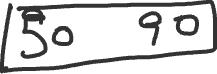 50 90